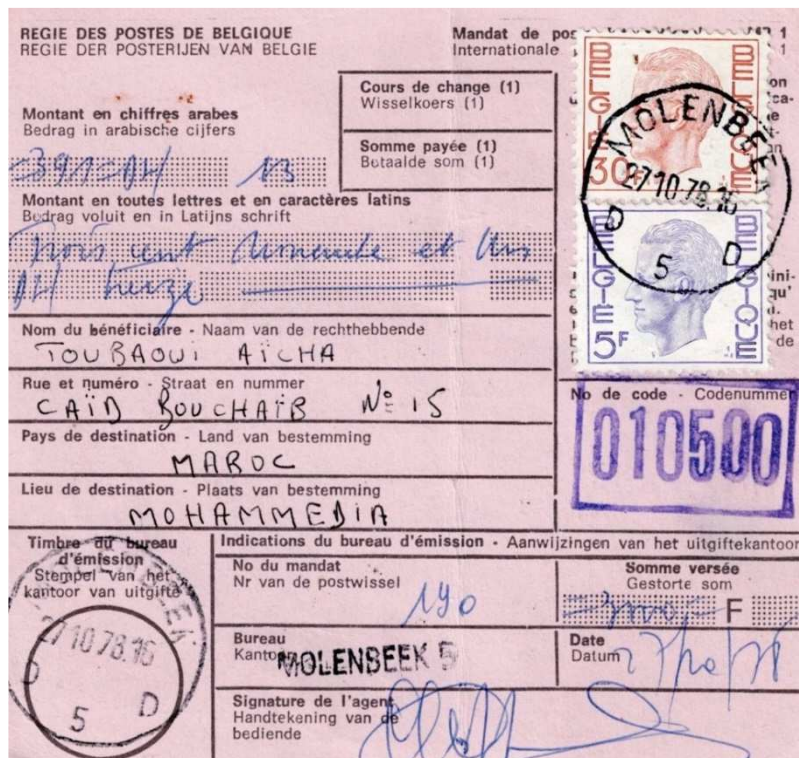 REGIE DES POSTES DE BELGIQUE
REGIE DER POSTERIJEN VAN BELGIE
Mandat de pos
Internationale
1
Montant en chiffres arabes
Bedrag in arabische cijfers
Cours de change (1)
Wisselkoers (1)
Somme payée (1)
Betaalde som (1)
=391=DH 13
Montant en toutes lettres et en caractères latins
Bedrag voluit en in Latijns schrift
Trois cent nonante et un
DH treize
BELGIE BELGIQUE
30F
BELGIE BELGIQUE
5F
MOLENBEEK
27.10.78.16
D 5 D
Nom du bénéficiaire - Naam van de rechthebbende
TOUBAOUI AÏCHA
Rue et numéro - Straat en nummer
CAÏD BOUCHAÏB No 15
Pays de destination - Land van bestemming
MAROC
Lieu de destination - Plaats van bestemming
MOHAMMEDIA
No de code - Codenummer
010500
Timbre du bureau
d'émission
Stempel van het
kantoor van uitgifte
27.10.78.16
D 5 D
Indications du bureau d'émission - Aanwijzingen van het uitgiftekantoor
No du mandat
Nr van de postwissel
190
Somme versée
Gestorte som
=3000,= F
Bureau
Kantoor
MOLENBEEK 5
Date
Datum
27/10/78
Signature de l'agent
Handtekening van de
bediende